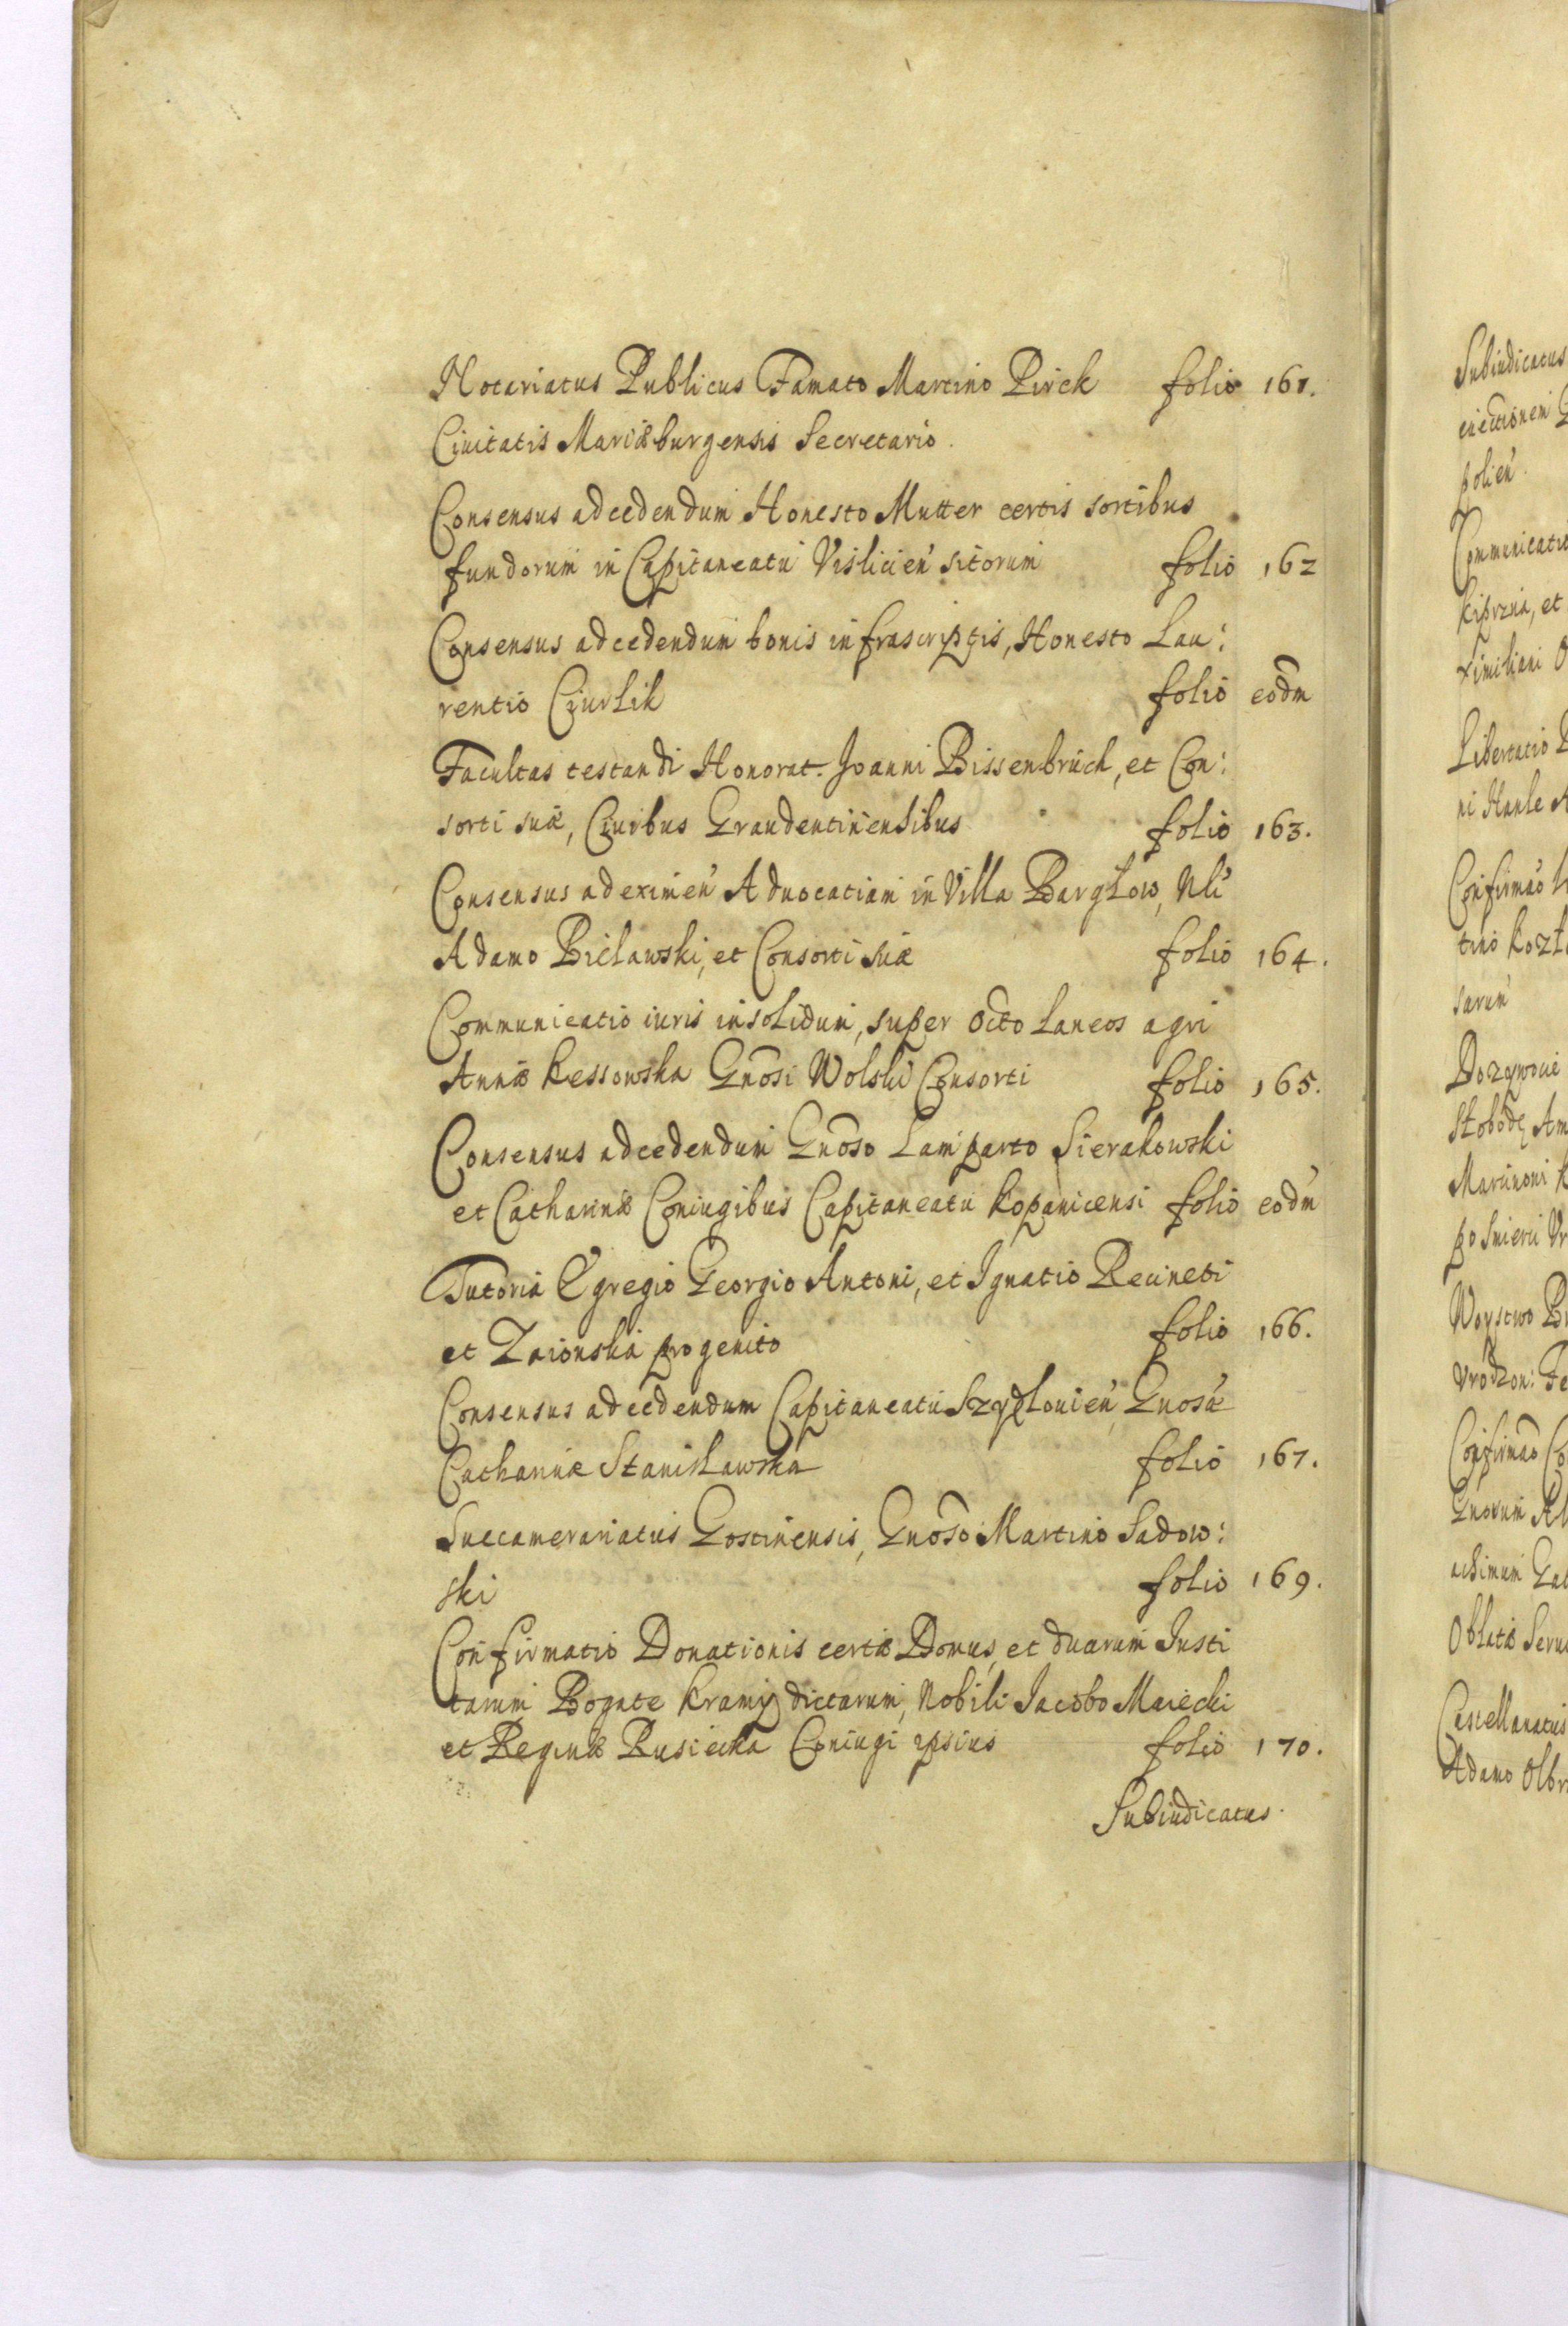 Notariatus Publicus Famato Martino Pirck folio 161.
Ciuitatis Mariæburgensis Secretario.
Consensus ad cedendum Honesto Mutter certis sortibus
fundorum in Capitaneatu Vislicien̄ sitorum folio 162
Consensus ad cedendum bonis infrascriptis, Honesto Lau:
rentio Ciurlik folio eodm̄
Facultas testandi Honorat. Joanni Bissenbrück, et Con:
sorti suæ, Ciuibus Graudentinensibus folio 163.
Consensus ad eximen̄ Aduocatiam in Villa Bargłow, Nli
Adamo Bielawski, et Consorti suæ folio 164.
Communicatio iuris insolidum, super octo laneos agri
Annæ Kessowska Gnōsi Wolski Consorti folio 165.
Consensus ad cedendum Gnōso Lamparto Sierakowski
et Catharinæ Coniugibus Capitaneatu Kopanicensi folio eodm̄
Tutoria Egregio Georgio Antoni, et Ignatio
et progenito folio 166.
Consensus ad cedendum Capitaneatu Szydłouien̄, Gnosæ
Catharinæ Stanisławska folio 167.
Succamerariatus Gostinensis, Gnōso Martino Sadow:
ski folio 169.
Confirmatio Donationis certæ Domus, et duarum Insti
tarum Bogate Kramy dictarum, Nobili Jacobo Maiecki
et Reginæ Rusiecka Coniugi ipsius folio 170.
Subiudicatus.
Subiudicatus
polien̄.
Communicatio
Libertatio
Confirmāo
Adamo